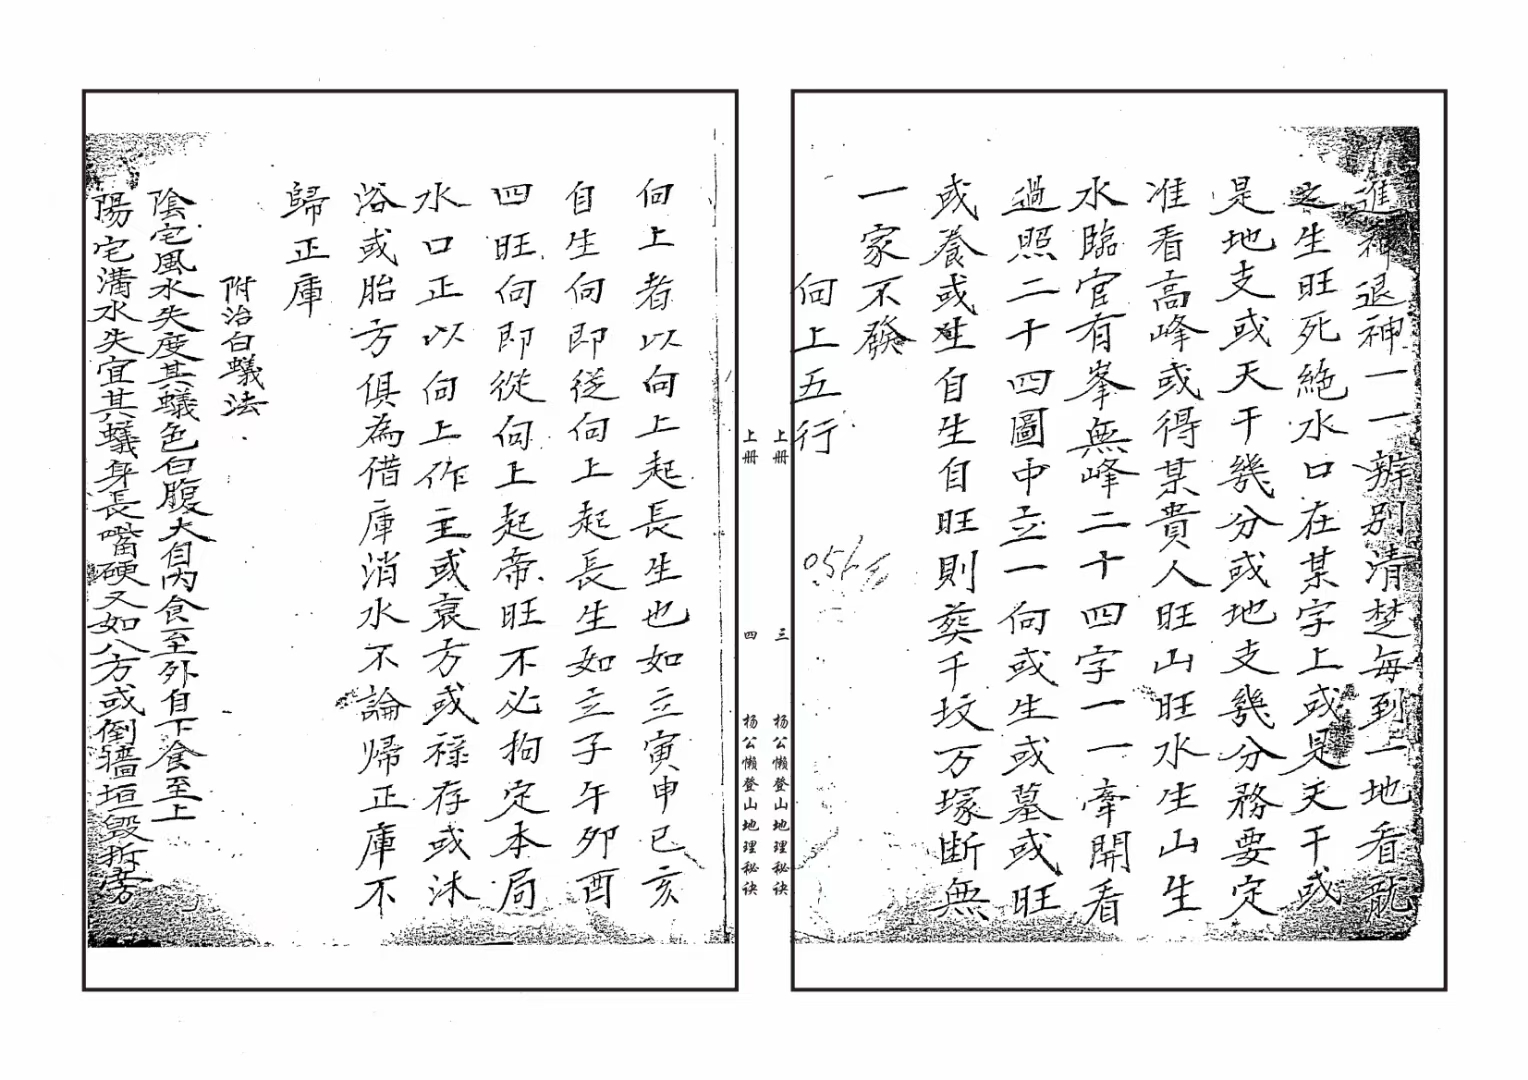 進神退神一一辨別清楚每到一地看龍
之生旺死絶水口在某字上或是天干或
是地支或天干幾分或地支幾分務要定
准看高峰或得某貴人旺山旺水生山生
水臨官有峯無峰二十四字一一牽開看
過照二十四圖中立一向或生或墓或旺
或養或生自生自旺則葵千坟万塚断無
一家不發
向上五行
上册 三 杨公懒登山地理秘诀
上册 四 杨公懒登山地理秘诀
向上者以向上起長生也如立寅申巳亥
自生向即従向上起長生如立子午夘酉
四旺向即從向上起帝旺不必拘定本局
水口正以向上作主或衰方或祿存或沐
浴或胎方俱為借庫消水不論帰正庫不
歸正庫
附治白蟻法
陰宅風水失度其蟻色白腹大自内食至外自下食至上
陽宅溝水失宜其蟻身長嘴硬又如八方或倒牆垣毀拆旁